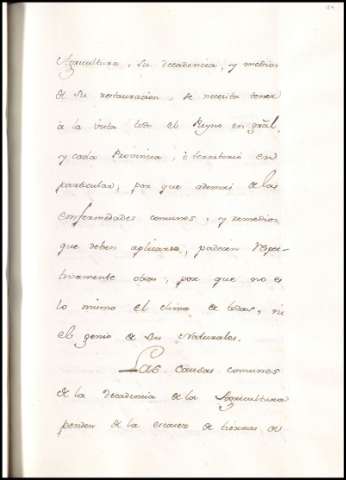 Agricultura, su decadencia, y medios
de su restauracion, se necesita tener
à la vista todo el Reyno en gràl,
y cada Provincia, ò territorio en
particular, por que ademas de las
enfermedades comunes, y remedios
que deben aplicarse, padecen respec-
tivamente otras, por que no es
lo mismo el clima de todas, ni
el genio de sus Naturales.
Las causas comunes
de la decadencia de la Agricultura
penden de la escasez de tierras de